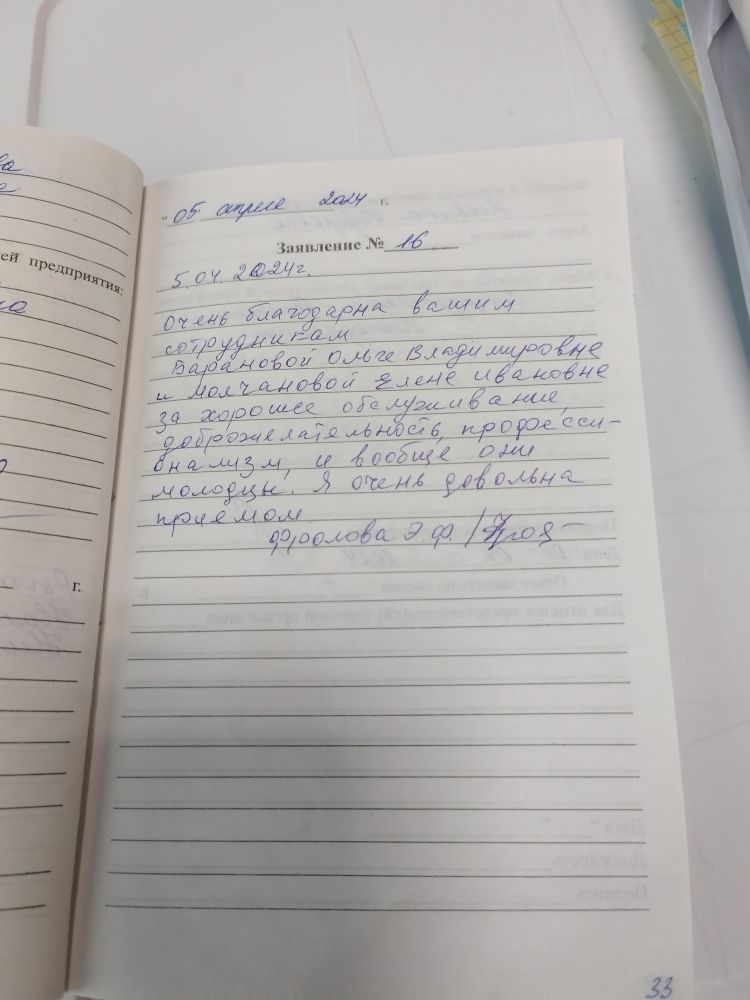 ей предприятия:
г.
" 05 апреля 2024 г.
Заявление № 16
5.04.2024г.
Очень благодарна вашим
сотрудникам
Барановой Ольге Владимировне
и Молчановой Елене Ивановне
за хорошее обслуживание,
доброжелательность, професси-
онализм, и вообще они
молодцы. Я очень довольна
приемом.
Фролова Э.Ф. /
33